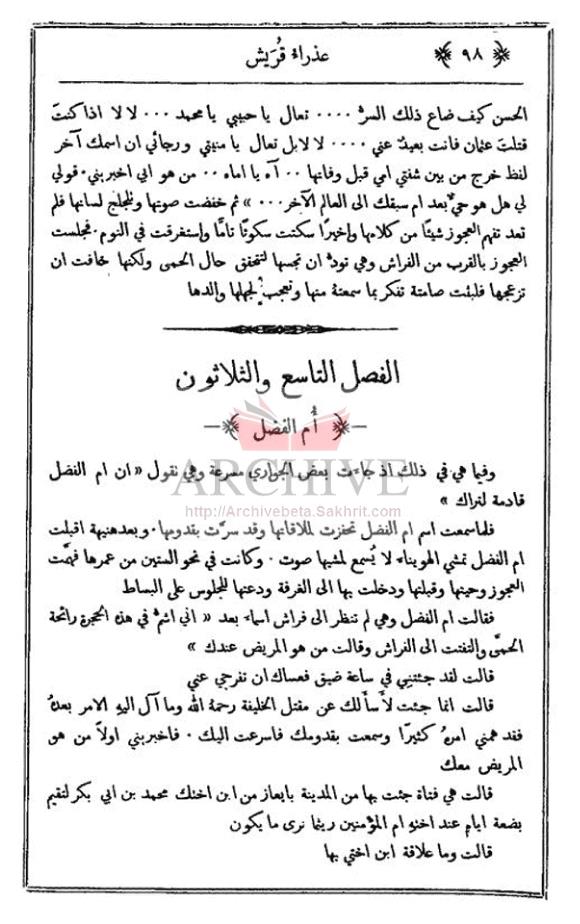 ﴿ ٩٨ ﴾ عذراء قُرَيش
الحسن كيف ضاع ذلك السرّ ٠٠٠٠ تعال يا حبيبي يا محمد ٠٠٠ لا لا اذا كنتَ
قتلتَ عثمان فانت بعيدٌ عني ٠٠٠٠ لا لا بل تعال يا منيتي ورجائي ان اسمك آخر
لفظ خرج من بين شفتي امي قبل وفاتها ٠٠ آه يا اماه ٠٠ من هو ابي اخبريني ٠ قولي
لي هل هو حيٌّ بعد ام سبقك الى العالم الآخر ٠٠٠ » ثم خفضت صوتها وتلجلج لسانها فلم
تعد تفهم العجوز شيئًا من كلامها واخيرًا سكتت سكوتًا تامًّا واستغرقت في النوم ٠ فجلست
العجوز بالقرب من الفراش وهي تودّ ان تجسها لتتحقق حال الحمى ولكنها خافت ان
تزعجها فلبثت صامتة تفكر بما سمعتهُ منها وتعجب لجهلها والدها
الفصل التاسع والثلاثون
﴿ أُم الفضل ﴾
وفيما هي في ذلك اذ جاءت بعض الجواري مسرعة وهي تقول « ان ام الفضل
قادمة لتراك »
فلما سمعت اسم ام الفضل تحفزت لملاقاتها وقد سرّت بقدومها ٠ وبعد هنيهة اقبلت
ام الفضل تمشي الهويناء لا يُسمع لمشيها صوت ٠ وكانت في نحو الستين من عمرها فهمَّت
العجوز وحيتها وقبلتها ودخلت بها الى الغرفة ودعتها للجلوس على البساط
فقالت ام الفضل وهي لم تنظر الى فراش اسماء بعد « اني اشمّ في هذه الحجرة رائحة
الحمَّى والتفتت الى الفراش وقالت من هو المريض عندك »
قالت لقد جئتنِي في ساعة ضيق فعساك ان تفرجي عني
قالت انما جئت لأسألك عن مقتل الخليفة رحمهُ الله وما آل اليهِ الامر بعدهُ
فقد همني امرهُ كثيرًا وسمعت بقدومك فاسرعت اليك ٠ فاخبريني اولاً من هو
المريض معك
قالت هي فتاة جئت بها من المدينة بايعاز من ابن اختك محمد بن ابي بكر لتقيم
بضعة ايام عند اختهِ ام المؤمنين ريثما نرى ما يكون
قالت وما علاقة ابن اختي بها
ARCHIVE
http://Archivebeta.Sakhrit.com